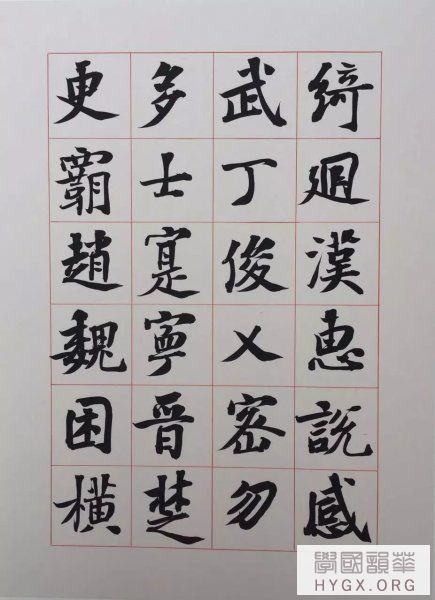 綺迴漢惠說感
武丁俊乂密勿
多士寔寧晉楚
更霸趙魏困橫
學國韻華
HYGX.ORG